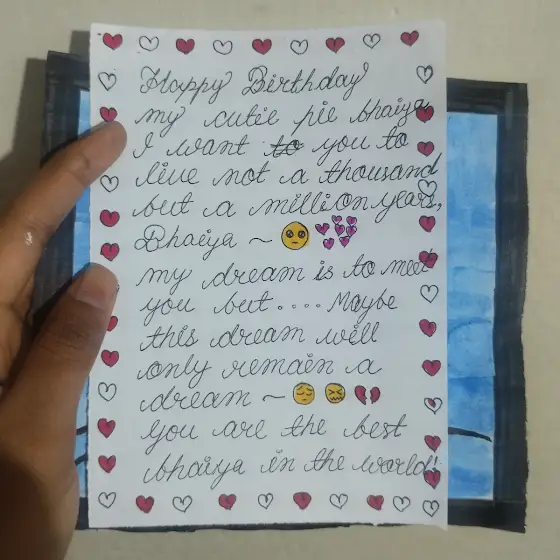 Happy Birthday
my cutie pie bhaiya
I want to you to
live not a thousand
but a million years,
Bhaiya ~ 🥺 💞
my dream is to meet
you but.... Maybe
this dream will
only remain a
dream ~ 😔 😖 💔
you are the best
bhaiya in the world!